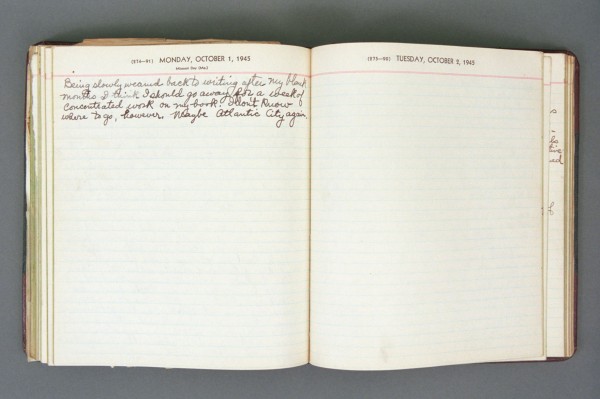 (274—91) MONDAY, OCTOBER 1, 1945
Being slowly weaned back to writing after my blank
months I think I should go away for a week of
concentrated work on my book. I don't know
where to go, however. Maybe Atlantic City again
(275—90) TUESDAY, OCTOBER 2, 1945